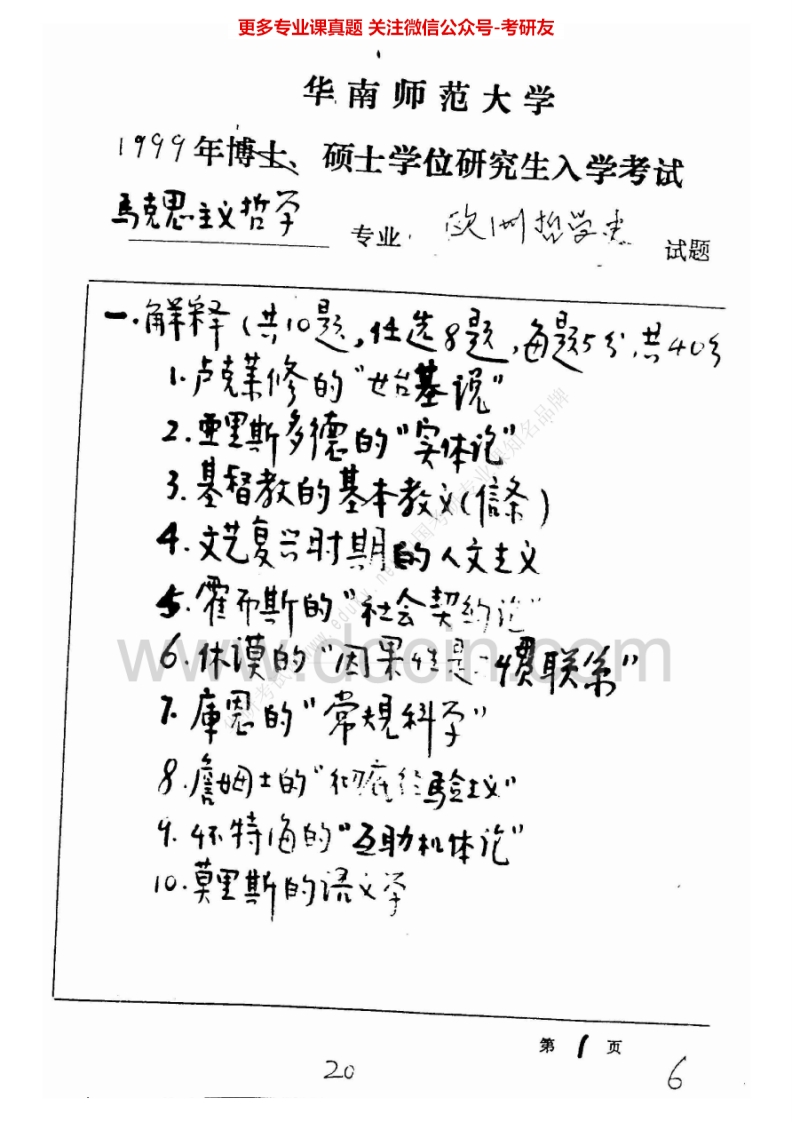 更多专业课真题 关注微信公众号-考研友
华南师范大学
1999年博士、硕士学位研究生入学考试
馬克思主义哲学 专业 欧洲哲学史 试题
一.解释(共10题,任选8题,每题5分,共40分
1.卢克莱修的"始基说"
2.亚里斯多德的"实体论"
3.基督教的基本教义(信条)
4.文艺复兴时期的人文主义
5.霍布斯的"社会契约论"
6.休谟的"因果性是习惯联系"
7.库恩的"常规科学"
8.詹姆士的"彻底经验主义"
9.怀特海的"互助机体论"
10.莫里斯的语义学
www.docin.com
第1页
20
6